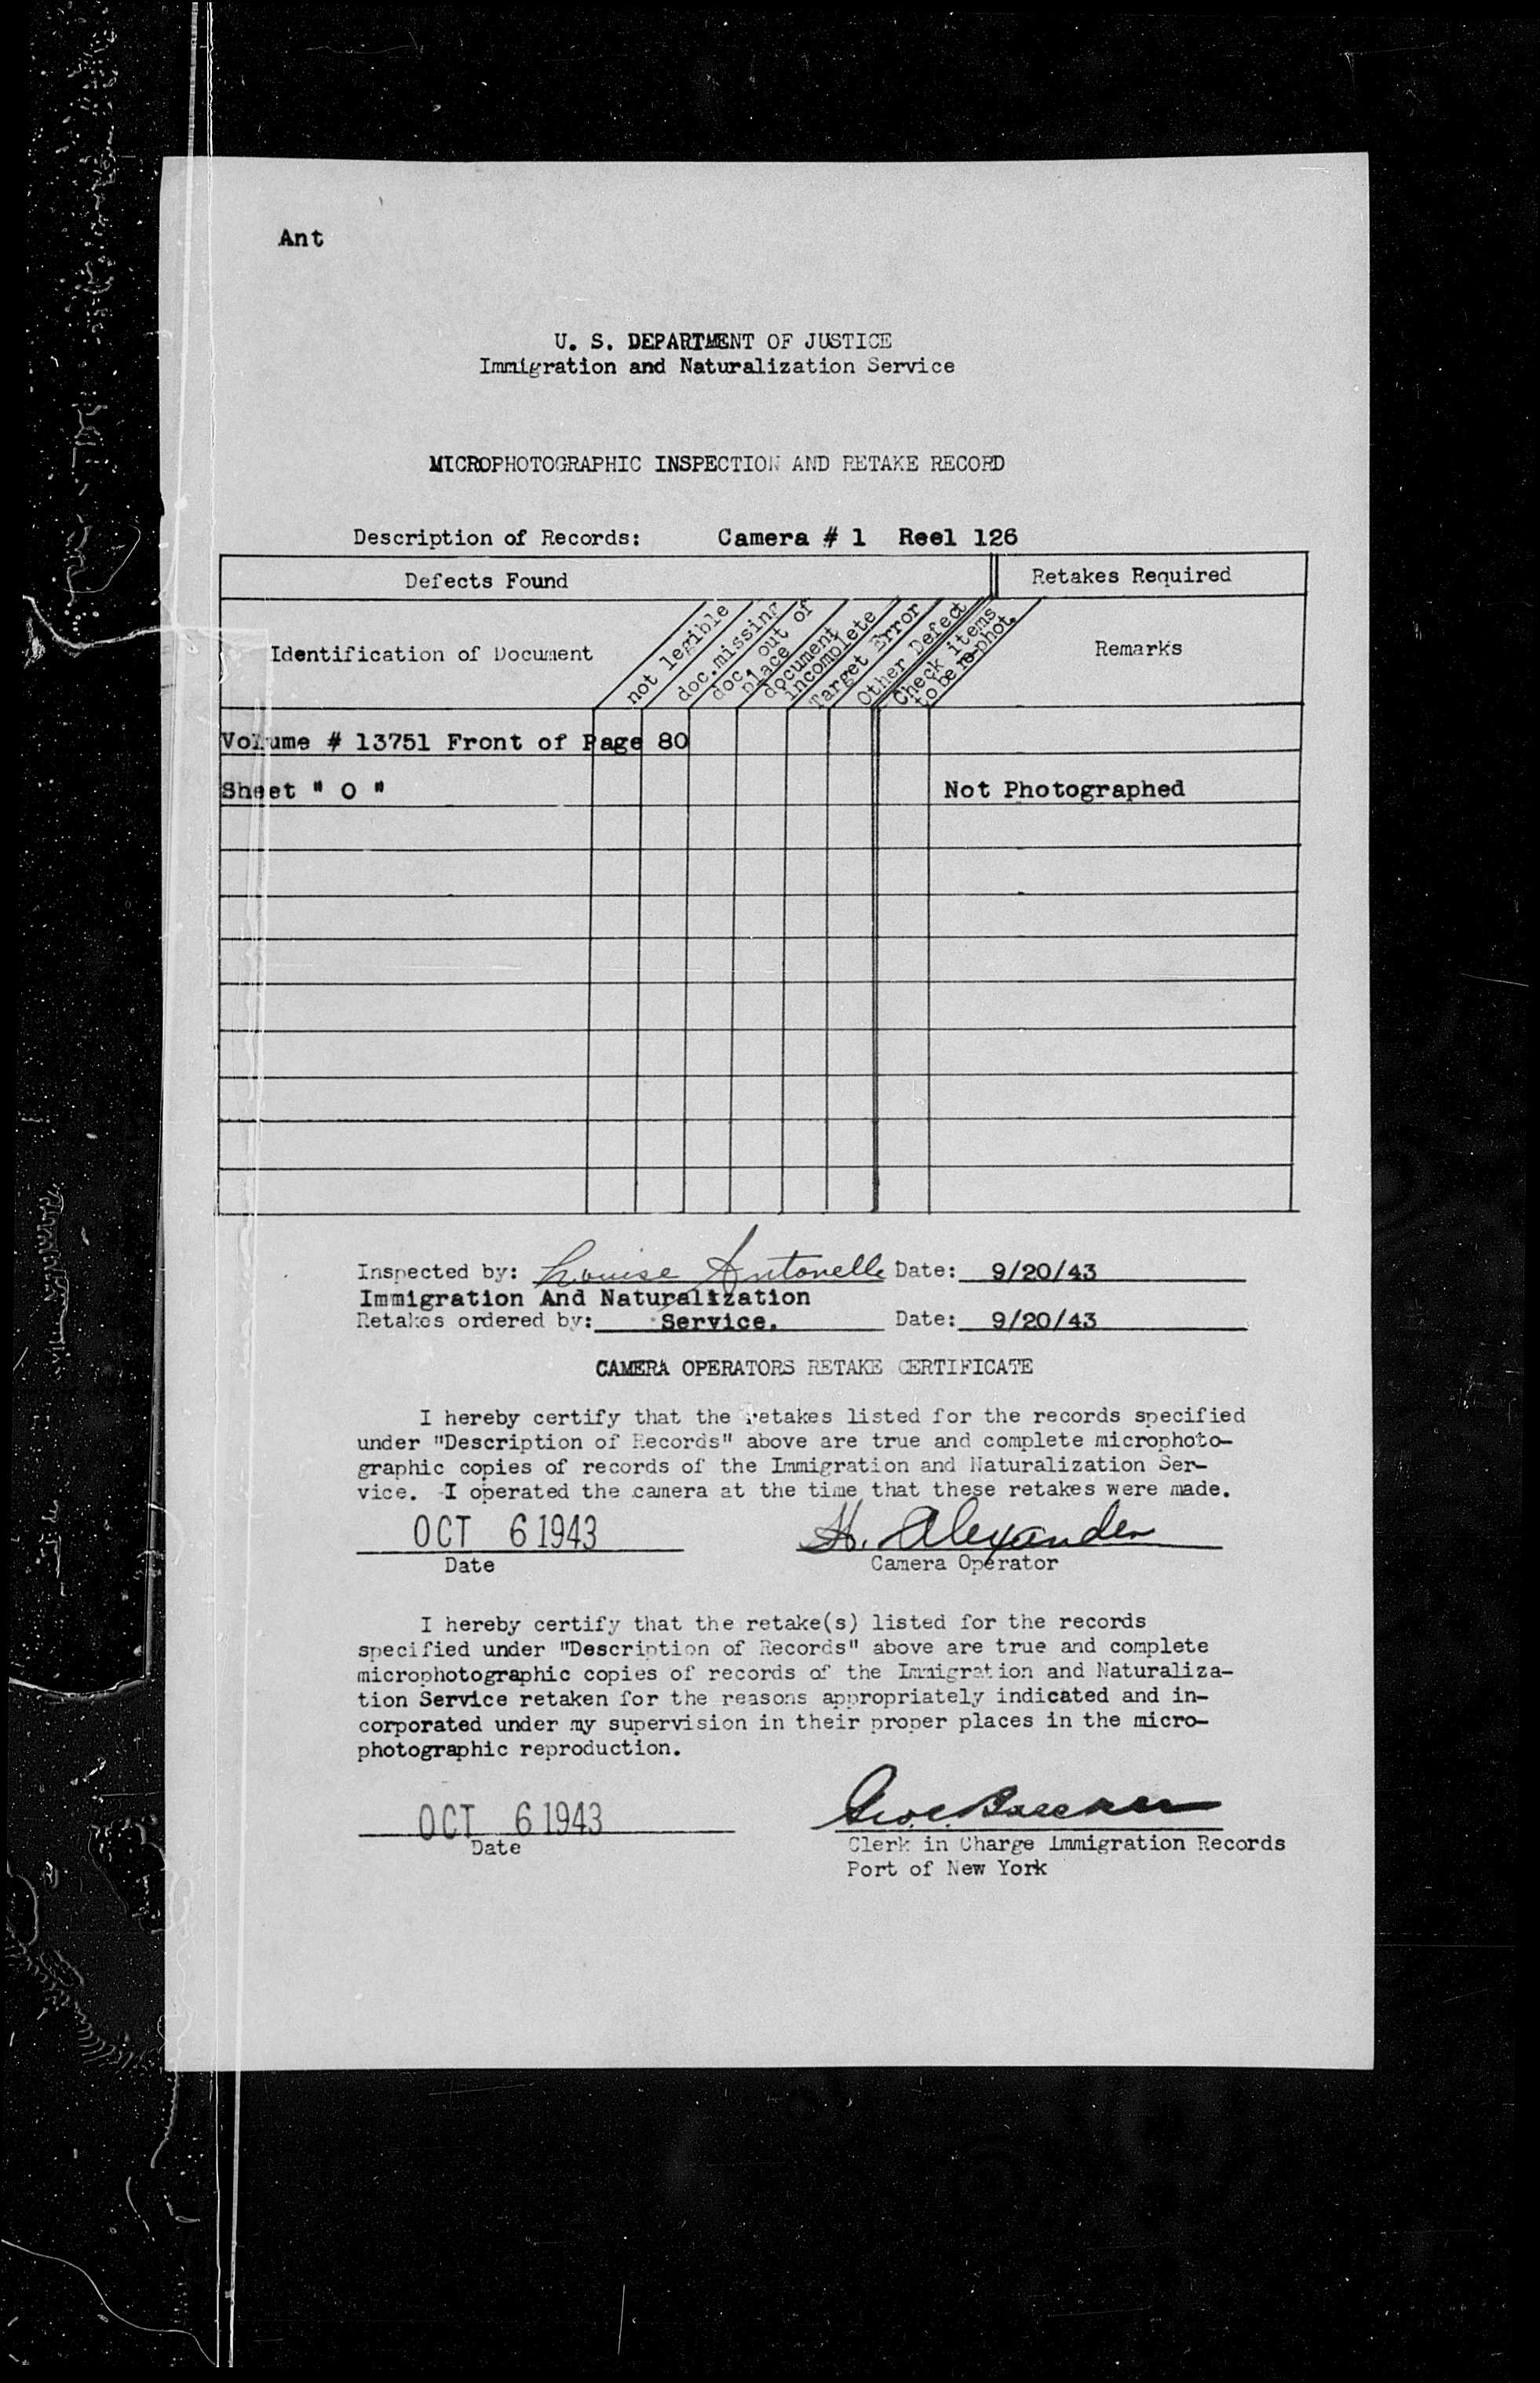 Ant
U. S. DEPARTMENT OF JUSTICE
Immigration and Naturalization Service
MICROPHOTOGRAPHIC INSPECTION AND RETAKE RECORD
Description of Records: Camera # 1 Reel 126
Defects Found Retakes Required
Identification of Document
not legible
doc.missing
doc. out of
place
document
incomplete
Target Error
Other Defect
Check items
to be re-phot.
Remarks
Volume # 13751 Front of Page 80
Sheet " O " Not Photographed
Inspected by: Louise Antonelle Date: 9/20/43
Immigration And Naturalization
Retakes ordered by: Service. Date: 9/20/43
CAMERA OPERATORS RETAKE CERTIFICATE
I hereby certify that the retakes listed for the records specified
under "Description of Records" above are true and complete microphoto-
graphic copies of records of the Immigration and Naturalization Ser-
vice. I operated the camera at the time that these retakes were made.
OCT 6 1943 H. Alexander
Date Camera Operator
I hereby certify that the retake(s) listed for the records
specified under "Description of Records" above are true and complete
microphotographic copies of records of the Immigration and Naturaliza-
tion Service retaken for the reasons appropriately indicated and in-
corporated under my supervision in their proper places in the micro-
photographic reproduction.
OCT 6 1943
Date
Clerk in Charge Immigration Records
Port of New York